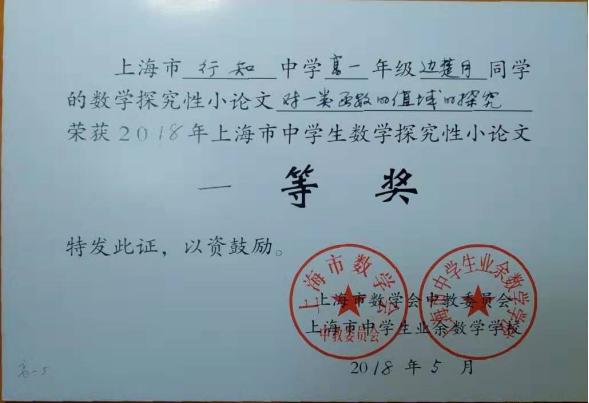 上海市行知中学高一年级边楚月同学
的数学探究性小论文对一类函数的值域的探究
荣获2018年上海市中学生数学探究性小论文
一等奖
特发此证，以资鼓励。
上海市数学会
中教委员会
上海市中学生业余数学学校
上海市数学会中教委员会
上海市中学生业余数学学校
2018年5月
高一5